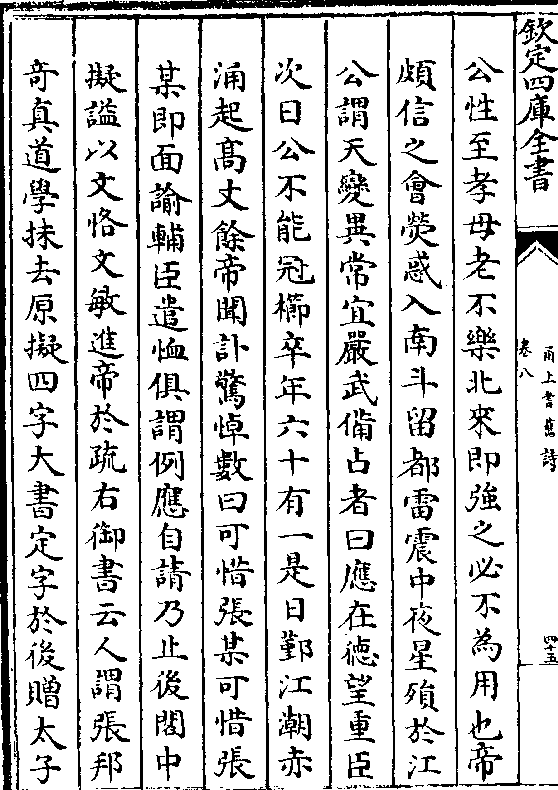 欽定四庫全書
甬上耆舊詩
卷八
四十五
公性至孝母老不樂北來即強之必不為用也帝
頗信之會熒惑入南斗留都雷震中夜星殞於江
公謂天變異常宜嚴武備占者曰應在德望重臣
次日公不能冠櫛卒年六十有一是日鄞江潮赤
涌起髙丈餘帝聞訃驚悼數曰可惜張某可惜張
某即面諭輔臣遣恤俱謂例應自請乃止後閣中
擬謚以文恪文敏進帝於疏右御書云人謂張邦
竒真道學抹去原擬四字大書定字於後贈太子